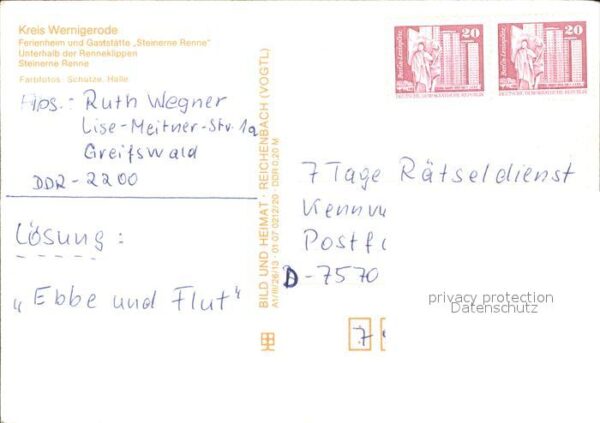 Kreis Wernigerode
Ferienheim und Gaststätte „Steinerne Renne"
Unterhalb der Renneklippen
Steinerne Renne
Farbfotos: Schütze, Halle
Abs.: Ruth Wegner
Lise-Meitner-Str. 1a
Greifswald
DDR-2200
Lösung:
„Ebbe und Flut"
BILD UND HEIMAT · REICHENBACH (VOGTL)
A1/III/26/13 · 01 07 0212/20 · DDR 0,20 M
Berlin-Leninplatz 20
DEUTSCHE DEMOKRATISCHE REPUBLIK
Berlin-Leninplatz 20
DEUTSCHE DEMOKRATISCHE REPUBLIK
7 Tage Rätseldienst
Kennw
Postf
D-7570
7
privacy protection
Datenschutz